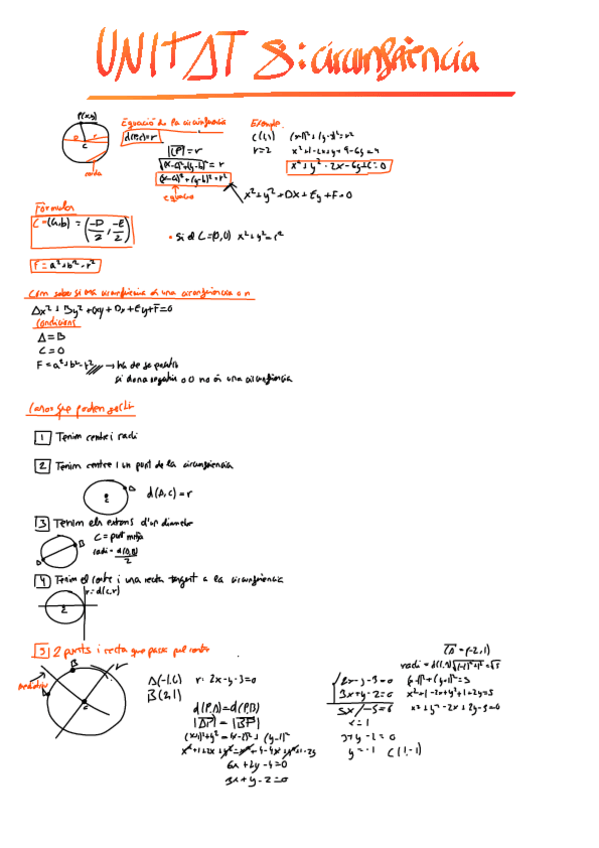 UNITAT 8: circumferència
P(x,y)
Equació de la circumferència
Exemple
d(P,C)=r
C(1,1) (x-1)²+(y-3)²=r²
|CP|=r
r=2
√(x-a)²+(y-b)² = r
(x-a)²+(y-b)²=r²
x²+y²-2x-6y+6=0
equació
corda
x²+y²+Dx+Ey+F=0
Fórmules
C=(a,b) = (-D/2, -E/2)
• Si el C=(0,0) x²+y²=r²
F=a²+b²-r²
Com saber si una circumferència és una circumferència o no
Ax²+By²+Cxy+Dx+Ey+F=0
Condicions
A=B
C=0
F=a²+b²-r² → ha de ser positiu
si dona negatiu o 0 no és una circumferència
Casos que poden sortir
1 Tenim centre i radi
2 Tenim centre i un punt de la circumferència
A
d(A,C)=r
3 Tenim els extrems d'un diametre
C = punt mitjà
B
radi = d(A,B)/2
4 Tenim el centre i una recta tangent a la circumferència
r=d(C,r)
5 2 punts i recta que passa pel centre
mediatriu
B
r
C
A(-1,0) r: 2x-y-3=0
B(2,1)
d(P,A)=d(P,B)
|AP|=|BP|
(x+1)²+y²=(x-2)²+(y-1)²
6x+2y-4=0
3x+y-2=0
2x-y-3=0
3x+y-2=0
5x/-5=0
x=1
3+y-2=0
y=-1 C(1,-1)
CA=(-2,1)
(x-1)²+(y+1)²=5
x²+1-2x+y²+1+2y=5
x²+y²-2x+2y-3=0